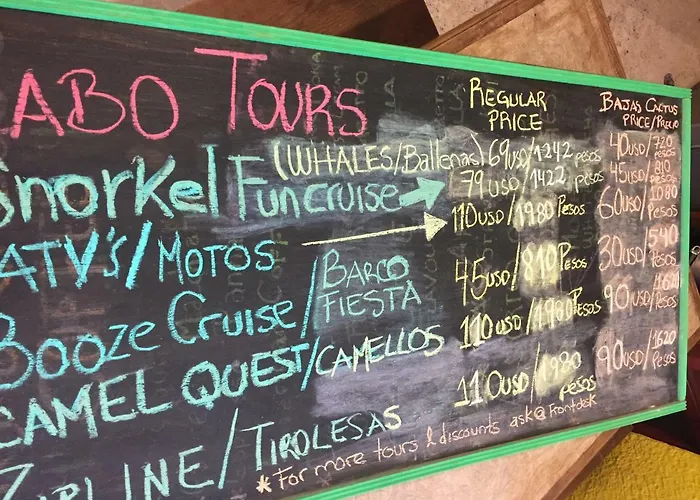 ABO TOURS
REGULAR PRICE
BAJAS CACTUS PRICE/PRECIO
(WHALES/Ballenas) 69USD/1242 pesos 40USD/720 pesos
Snorkel Funcruise 79USD/1422 pesos 45USD/810 pesos
ATV's/MOTOS 110USD/1980 Pesos 60USD/1080 pesos
Booze Cruise/BARCO FIESTA 45USD/810 Pesos 30USD/540 Pesos
CAMEL QUEST/CAMELLOS 110USD/1980 Pesos 90USD/1620 Pesos
ZIPLINE/TIROLESAS 110USD/1980 pesos 90USD/1620 Pesos
*For more tours & discounts ask@Frontdesk